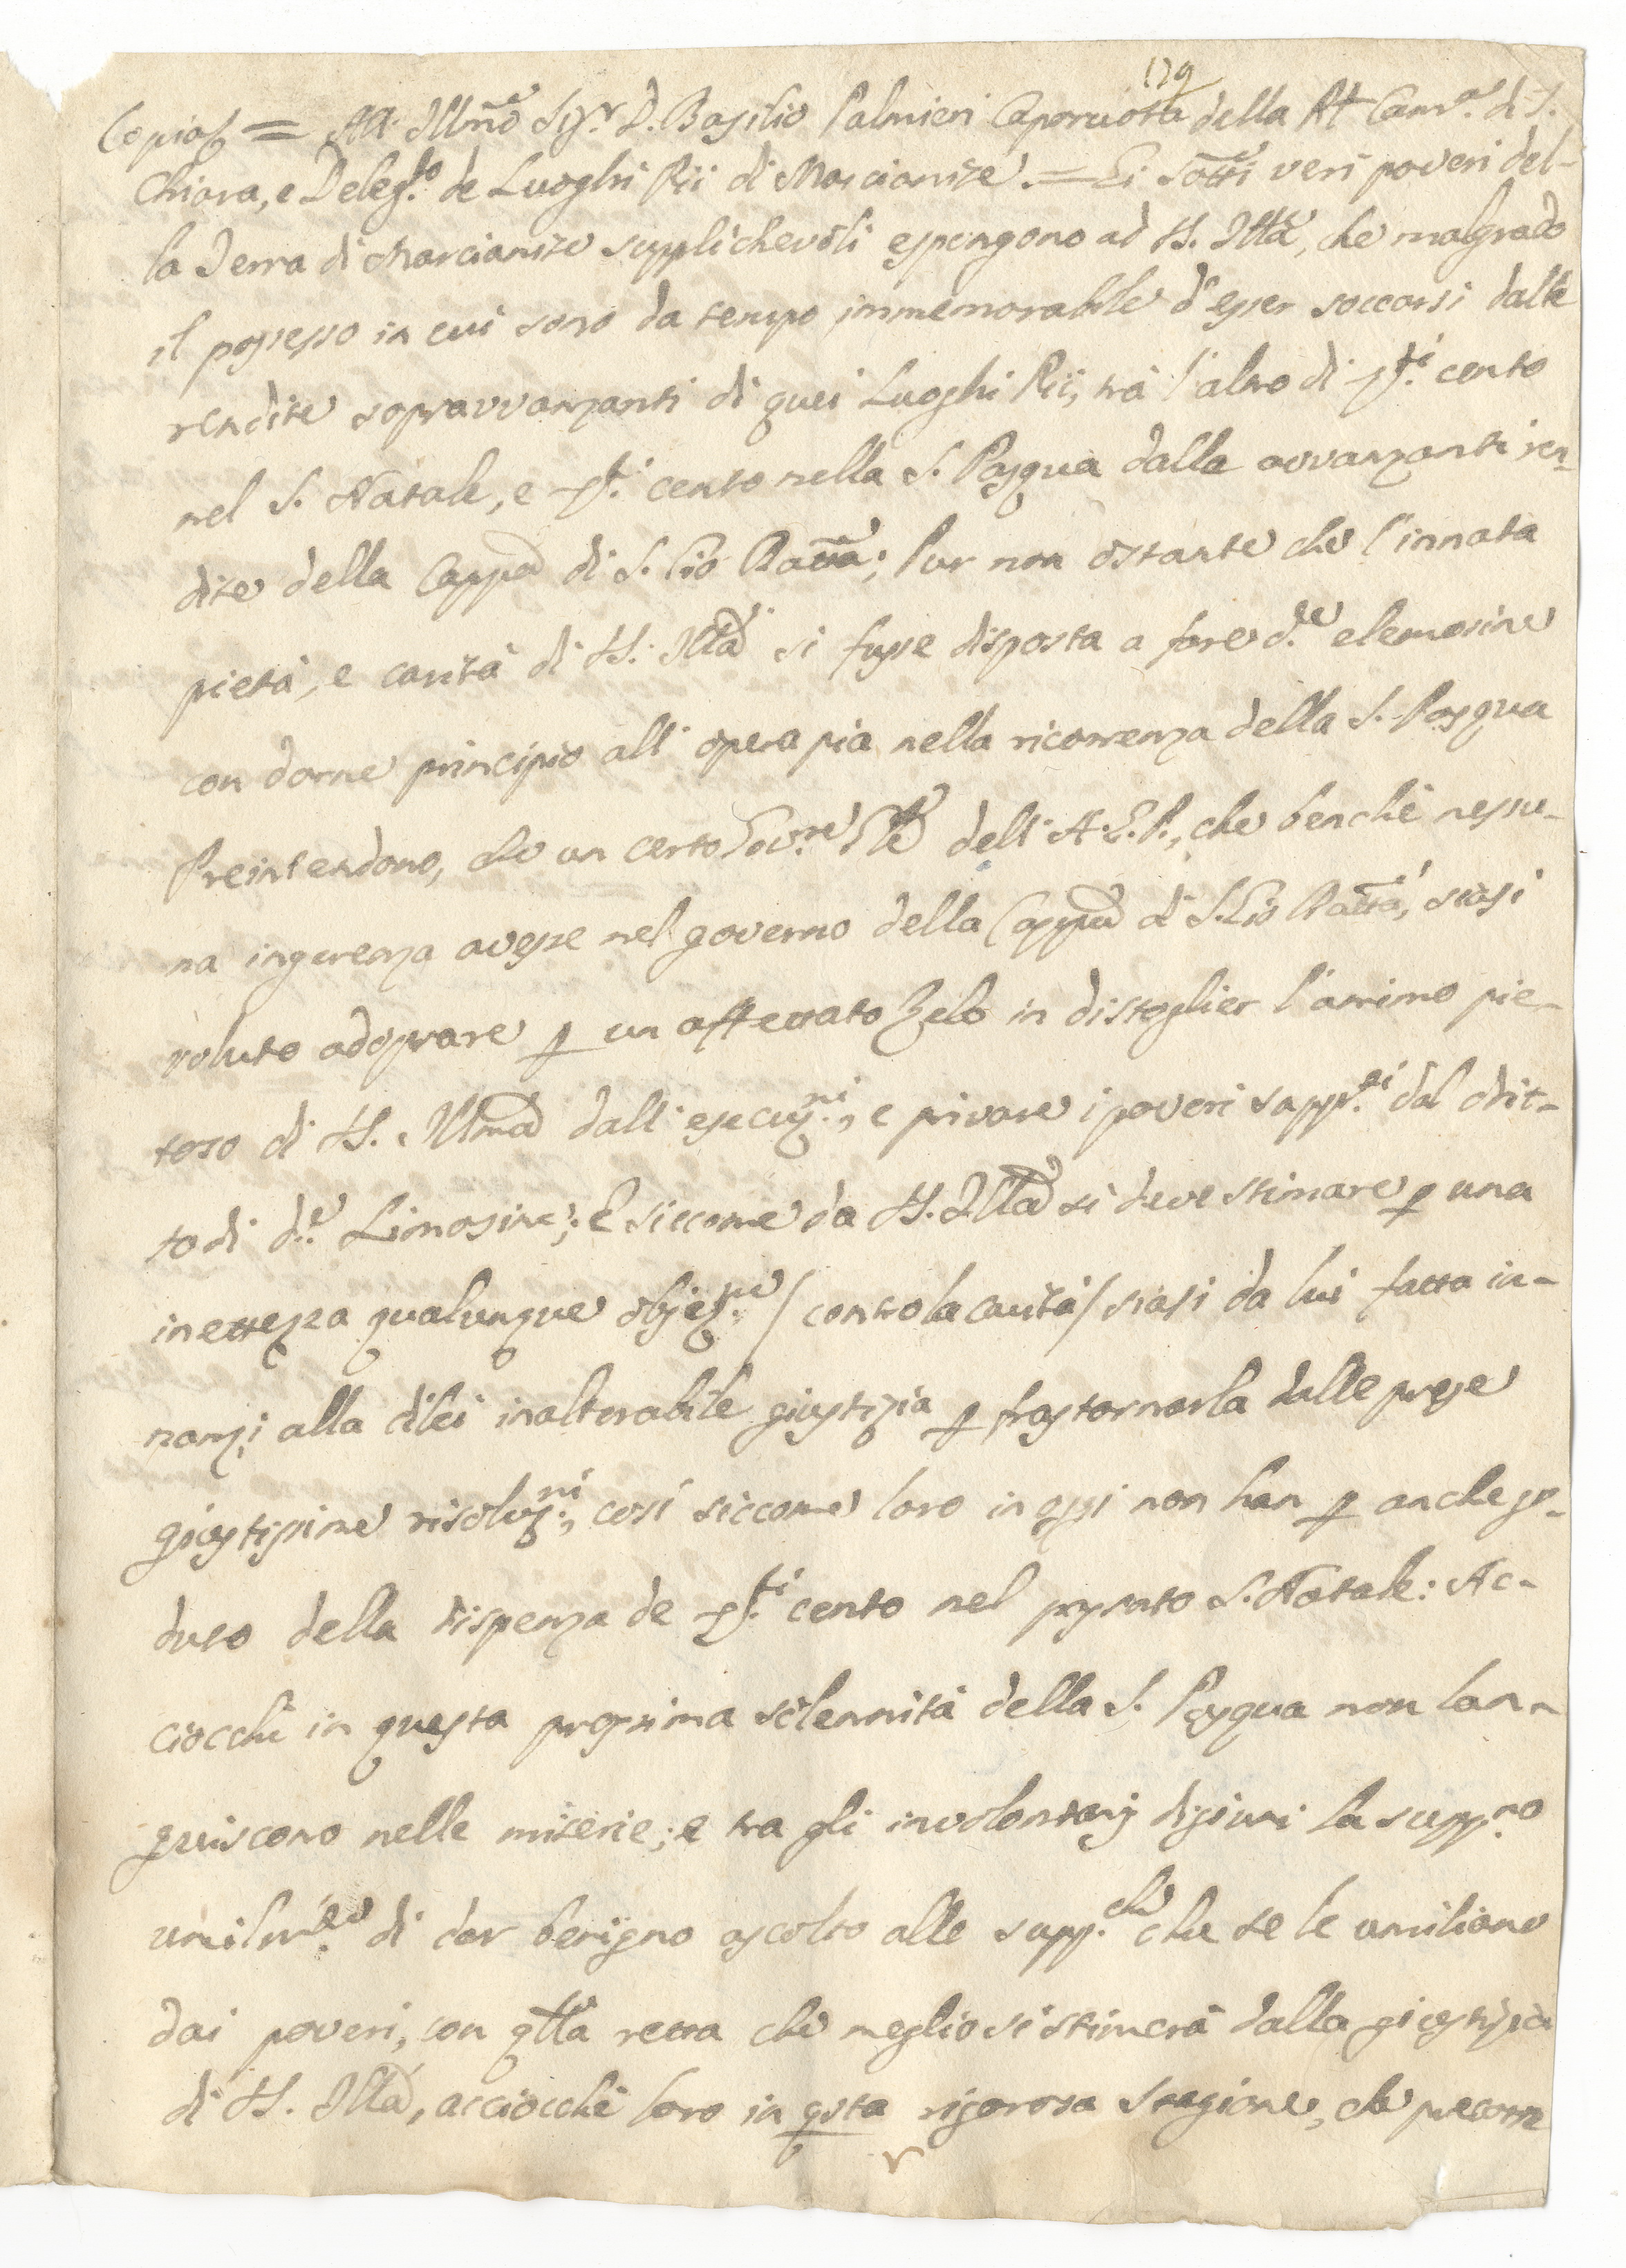 129
Copia = All' Illmo Sigr. D. Basilio Palmieri Caporuota della Rl Camra. di S.
Chiara, e Delegto. de Luoghi Pii di Marcianise. = Li sotti veri poveri del-
la Terra di Marcianise supplichevoli espongono ad V.S. Illma, che malgrado
il possesso in cui sono da tempo immemorabile d'esser soccorsi dalle
rendite sopravvanzanti di quei Luoghi Pii, trà l'altro di cento
nel S. Natale, e cento nella S. Pasqua dalle avvanzanti ren-
dite della Cappa di S. Gio Batta; Pur non ostante che l'innata
pietà, e carità di V.S. Illma si fusse disposta a fare d.e elemosine
con darne principio all' opera pia nella ricorrenza della S. Pasqua
Preintendono, che un certo Govre. dell' A.G.P., che benchè nessu-
na ingerenza avesse nel governo della Cappa di S. Gio Batta, siasi
voluto adoprare p un affettato Zelo in distoglier l'animo pie-
toso di V.S. Illma dall' esecuzni., e privare i poveri suppti. dal drit-
to di d.e Limosine; E siccome da V.S. Illma si deve stimare p una
inettezza qualunque objezne. / contro la carità / siasi da lui fatta in-
nanzi alla dilei inalterabile giustizia p frastornarla dalle prese
giustissime risoluzni., così siccome loro in oggi non han p anche go-
duto della dispenza de cento nel passato S. Natale: Ac-
ciocchè in questa prossima solennità della S. Pasqua non lan-
guiscono nelle miserie; e tra gli involontarj digiuni la suppno.
umilmte. di dar benigno ascolto alle supp.che che se le umiliano
dai poveri, con qlla retta che meglio si stimerà dalla giustizia
di V.S. Illma, acciocchè loro in qsta rigorosa stagione, che precorre